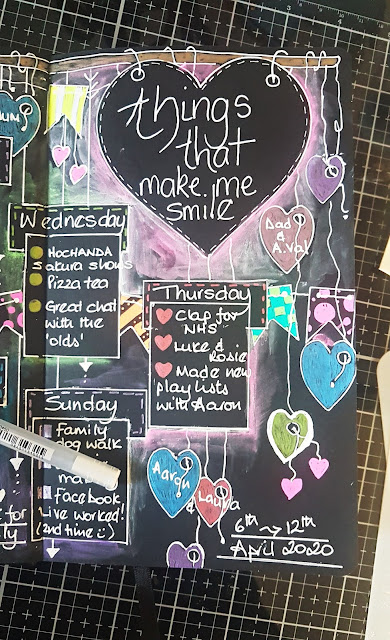 things
that
make me
smile
MUM
Dad
&
A.Val
Wednesday
HOCHANDA
Sakura shows
Pizza tea
Great chat
with the
'olds'
Thursday
Clap for
NHS
Luke &
Rosie
Made new
playlists
with Aaron
Sunday
Family
dog walk
Facebook
Live worked!
(2nd time :)
for
Aaron
&
Laura
6th → 12th
April 2020